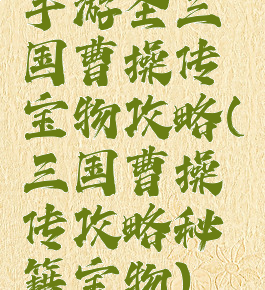 手游全三
国曹操传
宝物攻略(
三国曹操
传攻略秘
籍宝物)